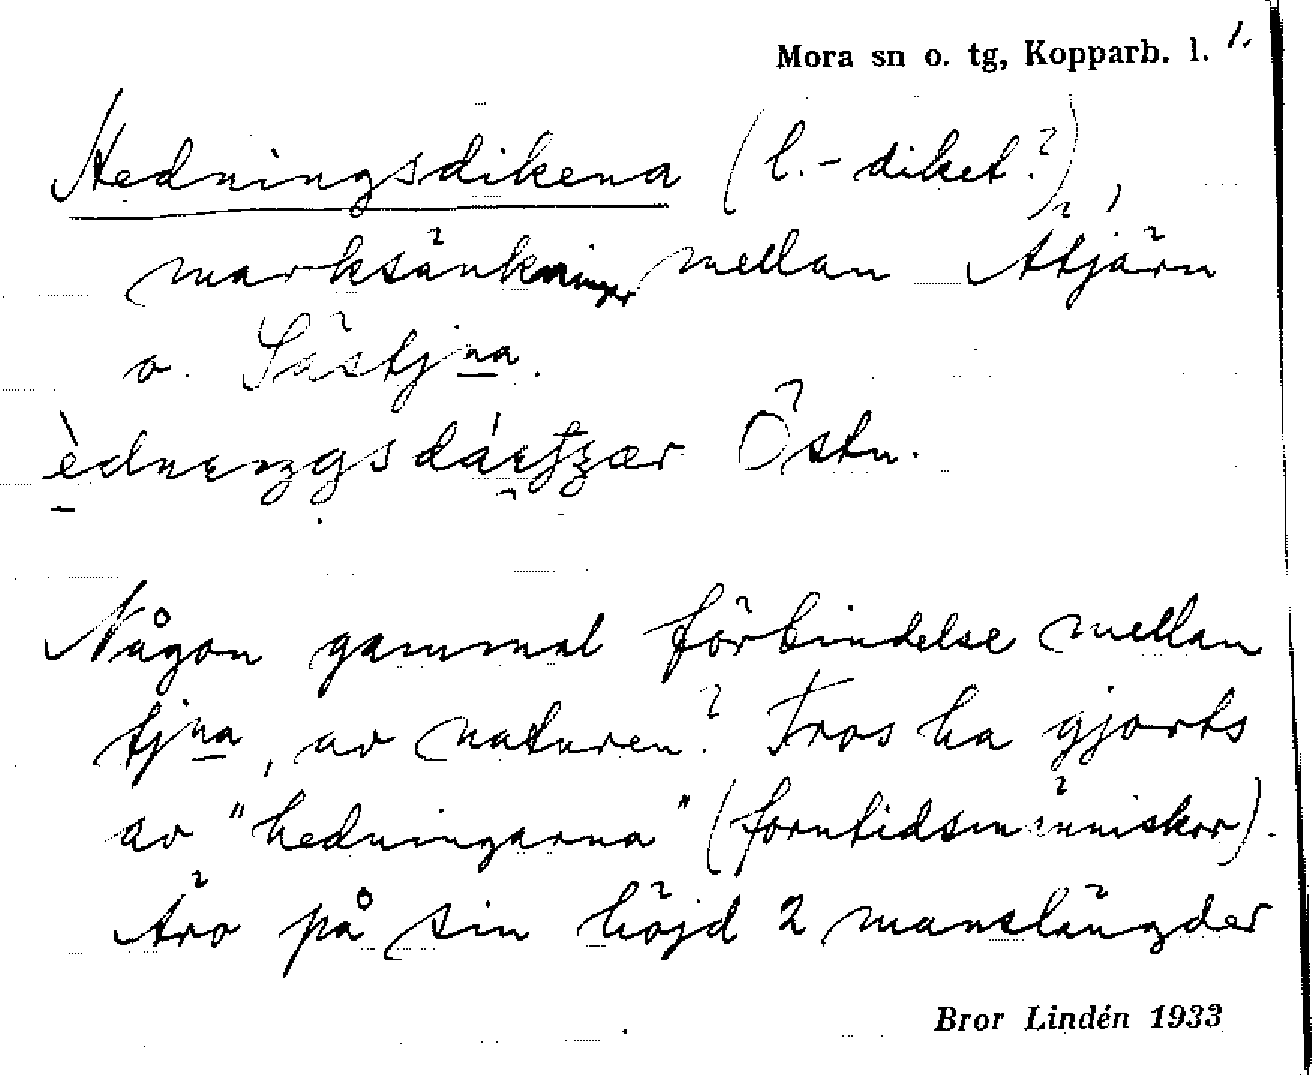 Mora sn o. tg, Kopparb. l. 1.
Hedningsdikena (l. -diket?),
marksänkningar mellan Åtjärn
o. Såstjna.
Östn.
Någon gammal förbindelse mellan
tjna, av naturen? Tros ha gjorts
av "hedningarna" (forntidsmänniskor).
Äro på sin höjd 2 manslängder
Bror Lindén 1933